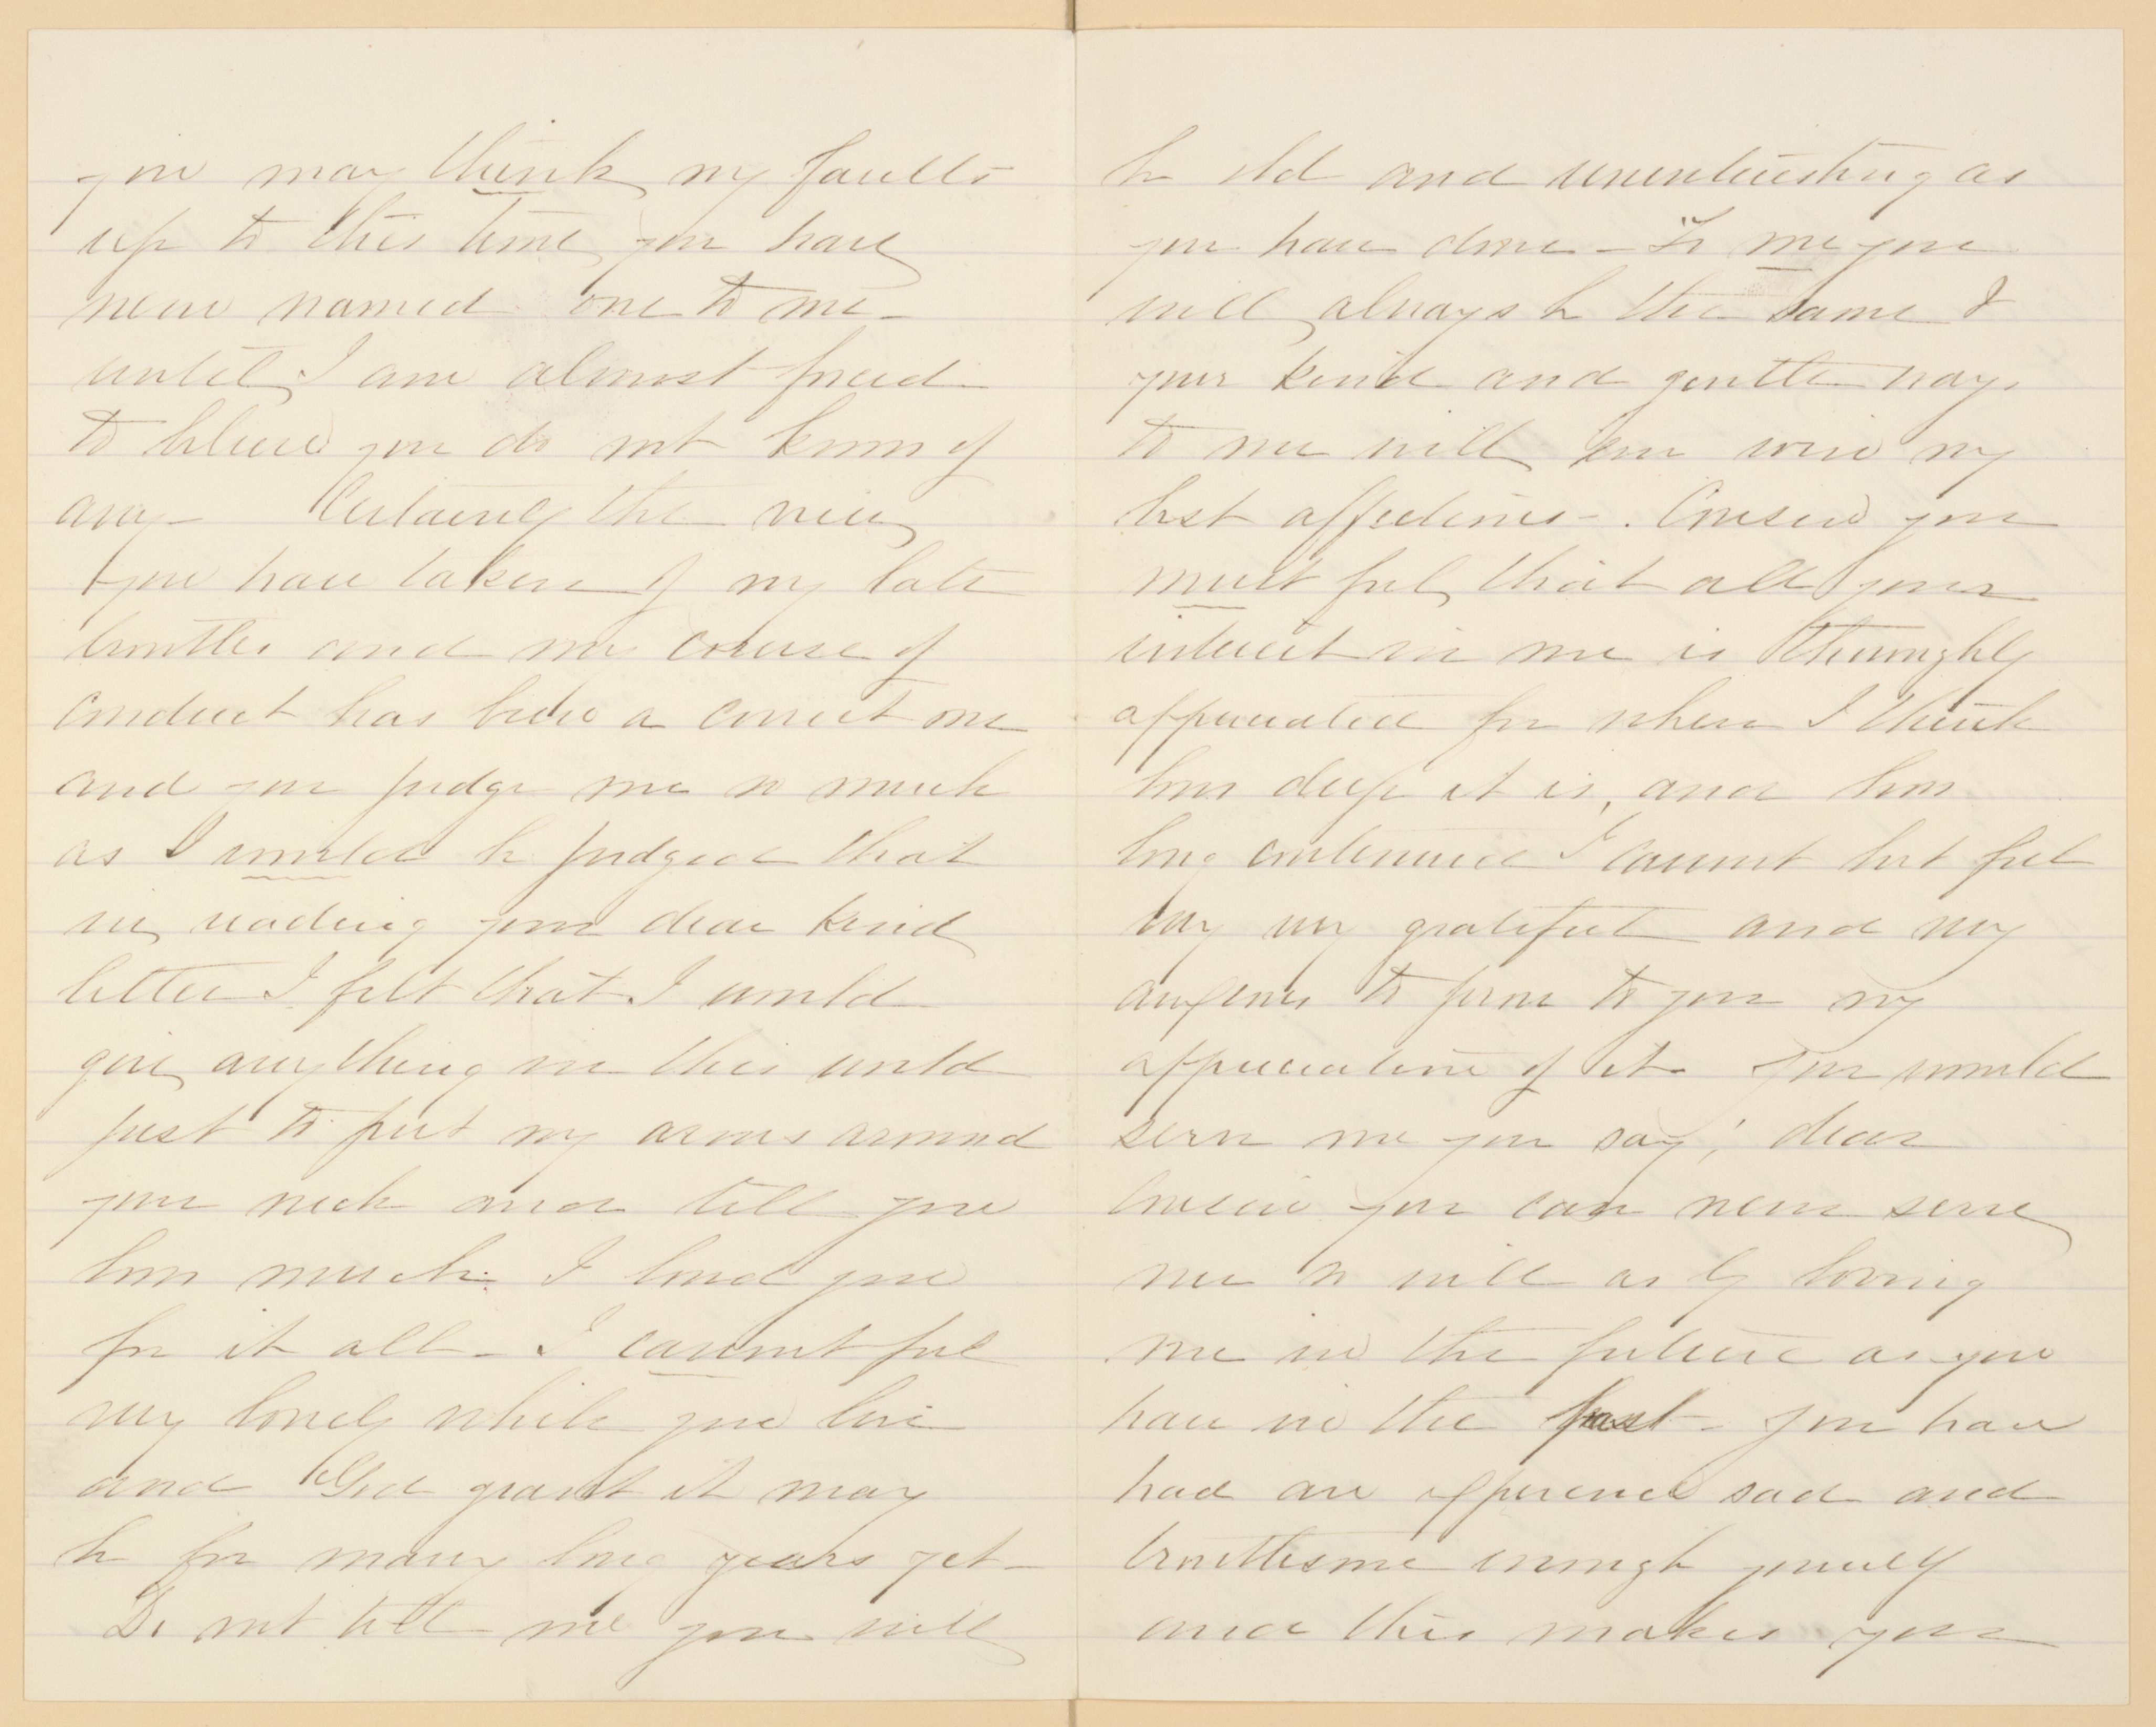 you may think my faults
up to this time you have
never named one to me –
until I am almost freed
to believe you do not know of
any – Certainly the view
you have taken of my late
troubles and my course of
conduct has been a correct one
and you judge me so much
as I would be judged that
in reading your dear kind
letter I felt that I would
give anything in this world
just to put my arms around
your neck and tell you
how much I loved you
for it all – I cannot feel
very lonely while you live
and God grant it may
be for many long years yet –
Do not tell me you will
be old and uninteresting as
you have done – To me you
will always be the same &
your kind and gentle ways
to me will ever win my
best affections – . Cousin you
must feel that all your
interest in me is thoroughly
appreciated for when I think
how deep it is, and how
long continued I cannot but feel
very very grateful and very
anxious to prove to you my
appreciation of it – You would
serve me you say; dear
Cousin you can never serve
me so well as by loving
me in the future as you
have in the past – You have
had an experience sad and
troublesome enough yourself
and this makes you